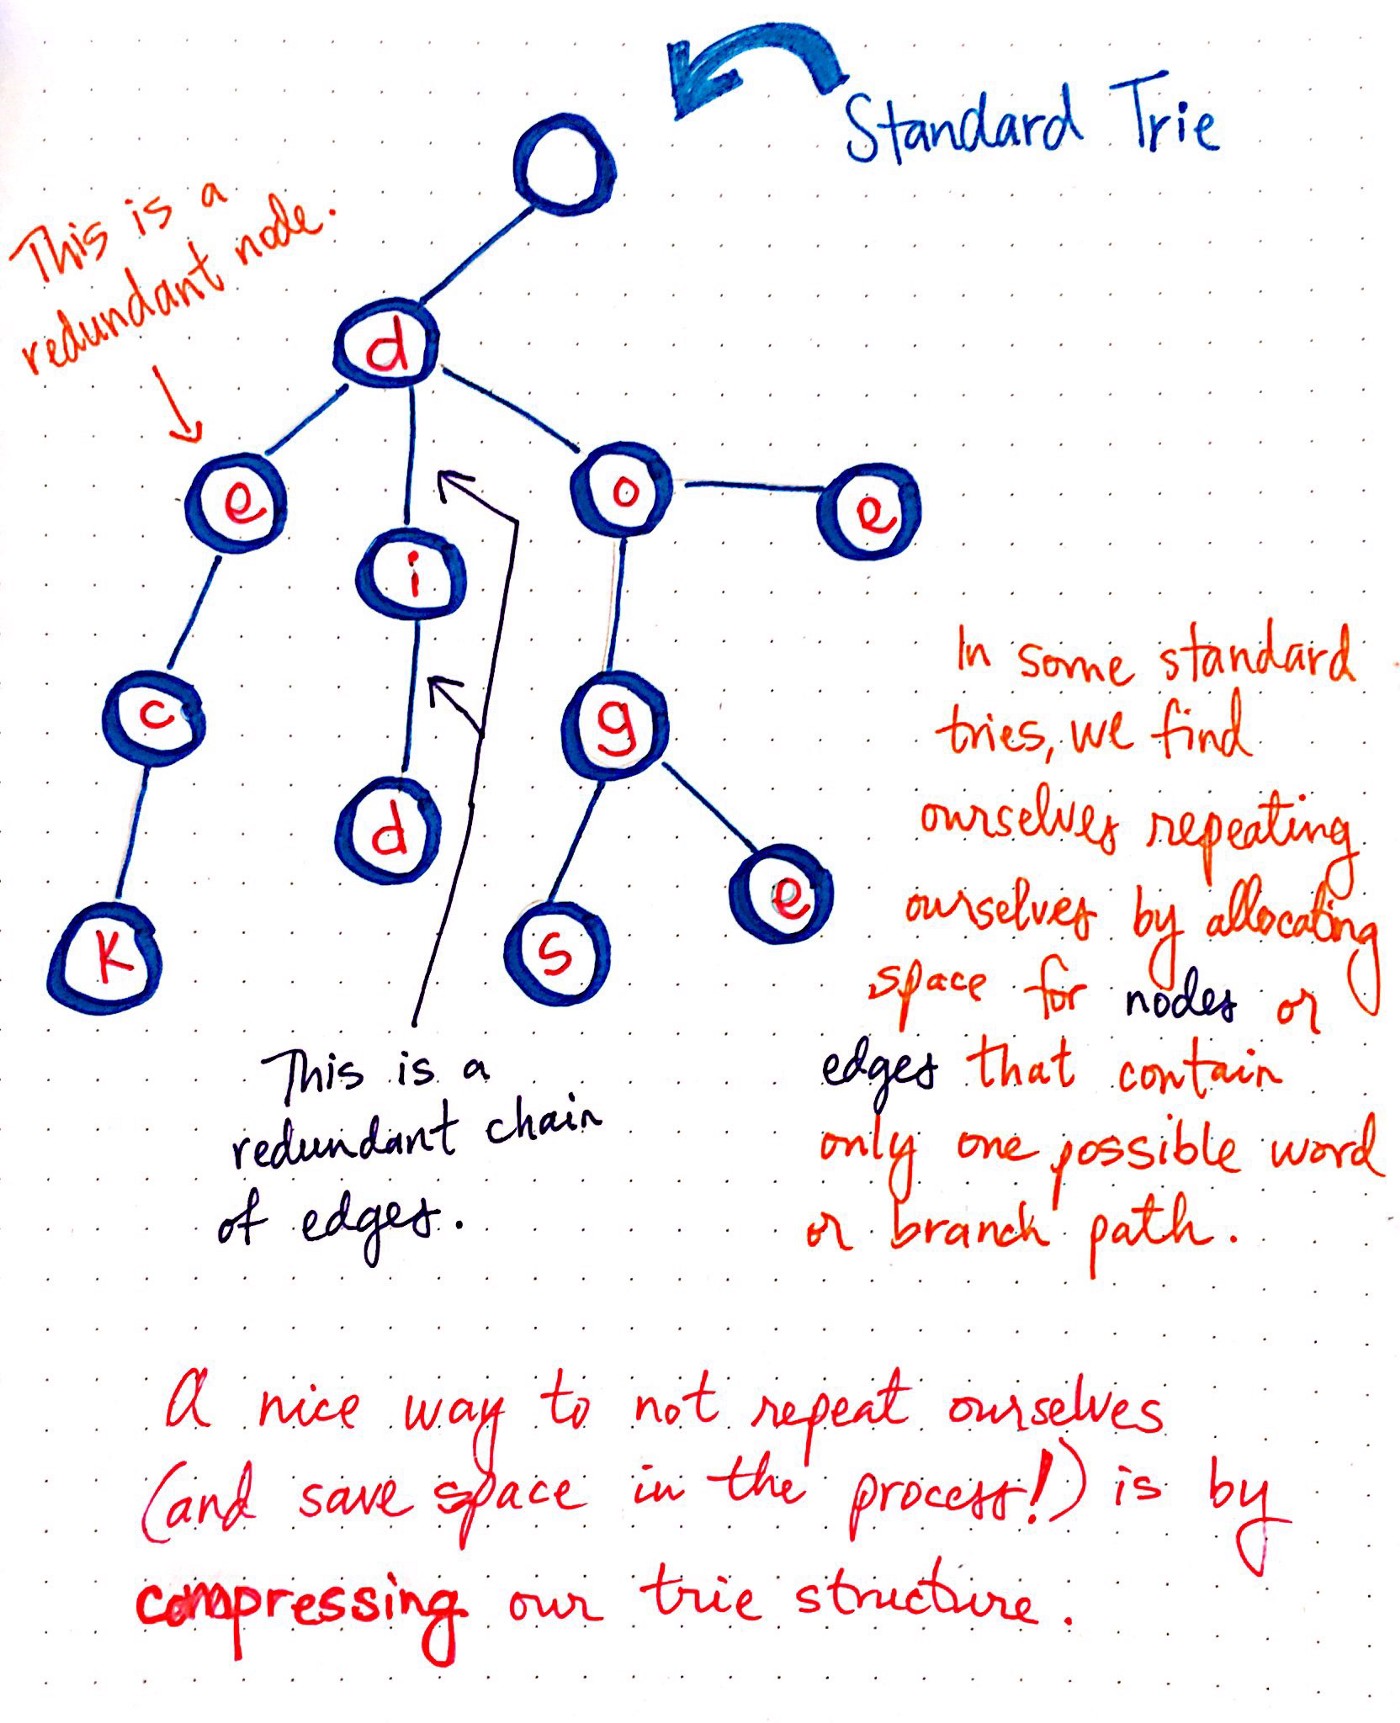 Standard Trie
This is a
redundant node.
d
e
i
o
e
c
d
g
k
s
e
This is a
redundant chain
of edges.
In some standard
tries, we find
ourselves repeating
ourselves by allocating
space for nodes or
edges that contain
only one possible word
or branch path.
A nice way to not repeat ourselves
(and save space in the process!) is by
compressing our trie structure.